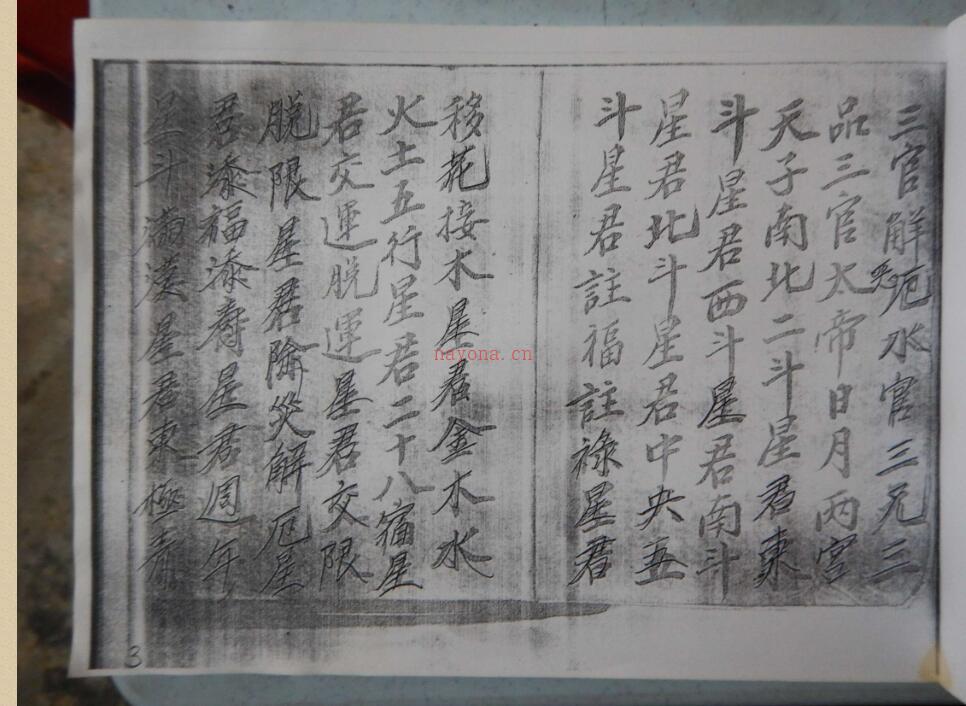 三官解厄水官三元三
品三官大帝日月兩宮
天子南北二斗星君東
斗星君西斗星君南斗
星君北斗星君中央五
斗星君註福註祿星君
移花接木星君金木水
火土五行星君二十八宿星
君交運脫運星君交限
脫限星君除災解厄星
君添福添壽星君週年
斗滿漢星君東極青
3
nayona.cn